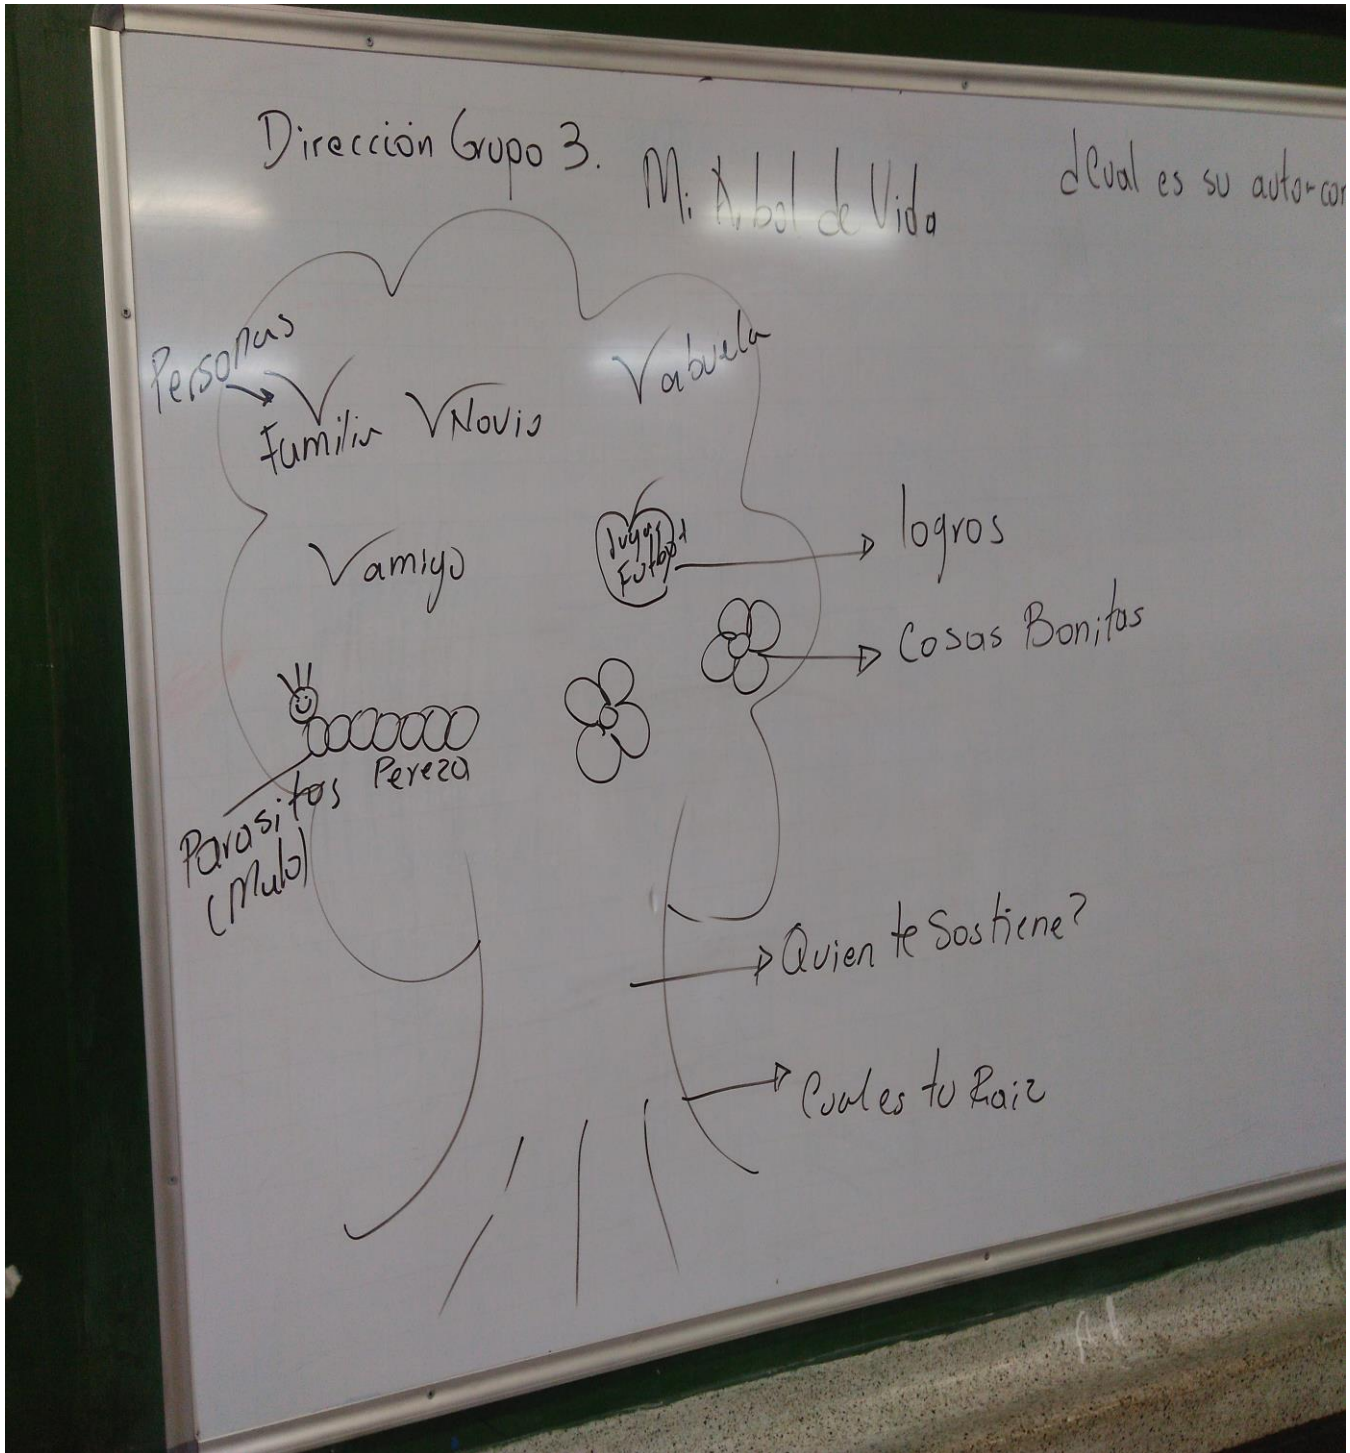 Dirección Grupo 3.
Mi Arbol de Vida
¿Cual es su auto-con
Personas
Familia
Novio
abuela
amigo
Jugar
Futbol
logros
Cosas Bonitas
Pereza
Parasitos
(Malo)
Quien te Sostiene?
Cual es tu Raiz